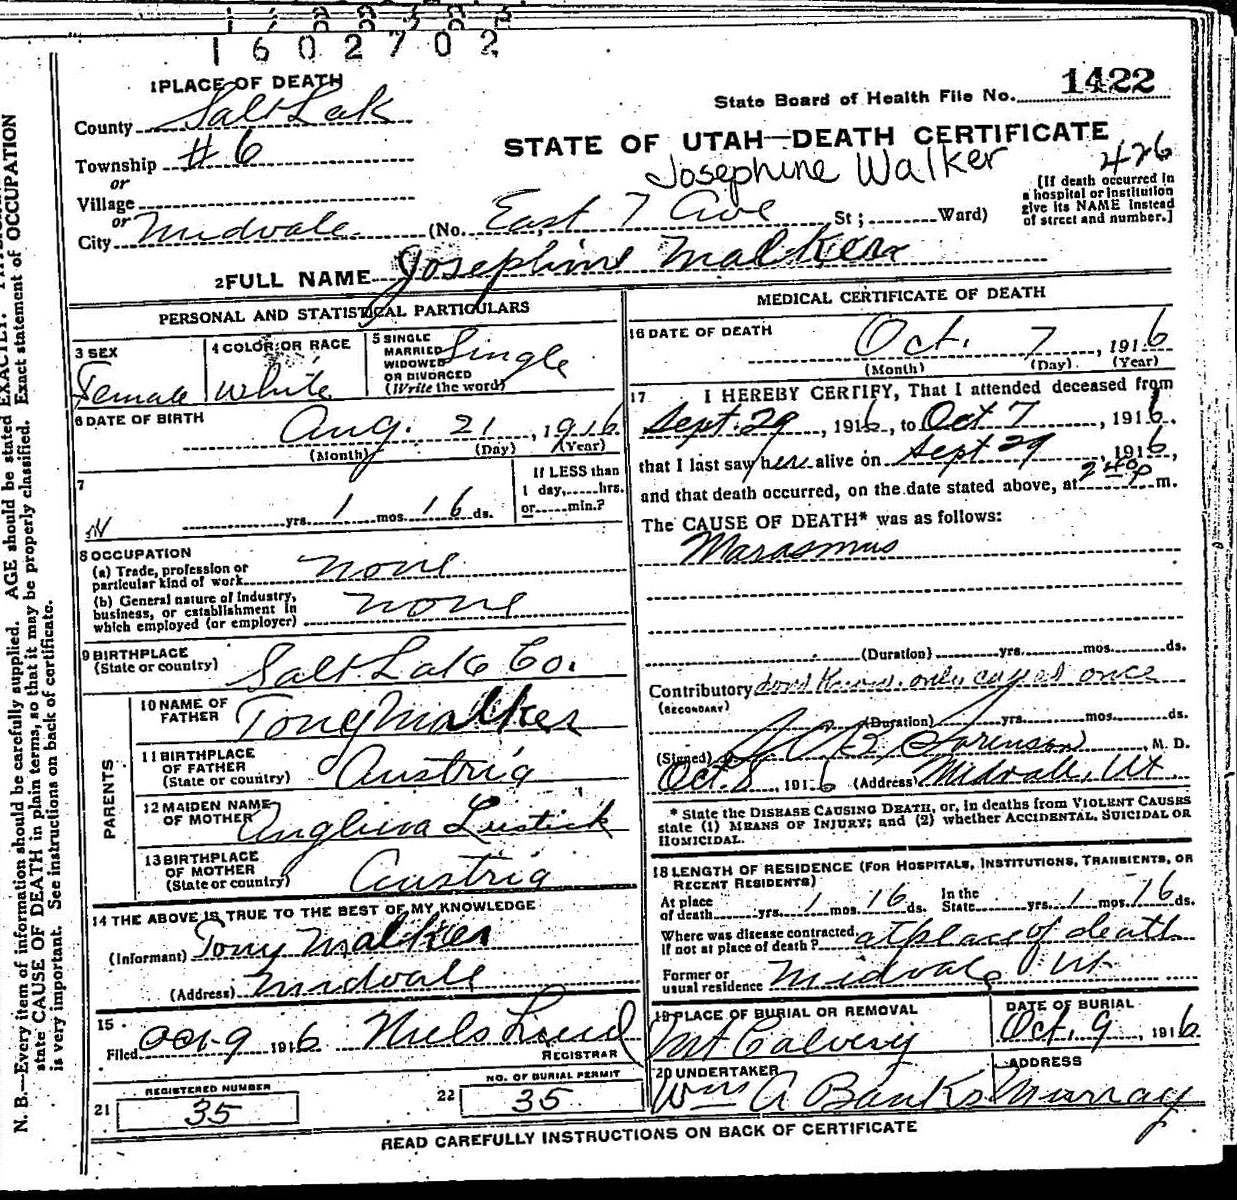 1602702
1 PLACE OF DEATH
County Salt Lak
Township #6
or
Village
or
City Midvale (No. East 7 Ave St; Ward)
State Board of Health File No. 1422
STATE OF UTAH—DEATH CERTIFICATE
Josephine Walker 426
[If death occurred in
a hospital or institution
give its NAME instead
of street and number.]
2 FULL NAME Josephine Malker
PERSONAL AND STATISTICAL PARTICULARS
3 SEX
Female
4 COLOR OR RACE
White
5 SINGLE
MARRIED
WIDOWED
OR DIVORCED
(Write the word)
Single
6 DATE OF BIRTH
Aug. 21, 1916
(Month) (Day) (Year)
7
yrs. 1 mos. 16 ds.
If LESS than
1 day, hrs.
or min.?
8 OCCUPATION
(a) Trade, profession or
particular kind of work none
(b) General nature of Industry,
business, or establishment in
which employed (or employer) none
9 BIRTHPLACE
(State or country) Salt Lake Co.
PARENTS
10 NAME OF
FATHER Tony Malker
11 BIRTHPLACE
OF FATHER
(State or country) Austria
12 MAIDEN NAME
OF MOTHER Lustick
13 BIRTHPLACE
OF MOTHER
(State or country) Austria
14 THE ABOVE IS TRUE TO THE BEST OF MY KNOWLEDGE
(Informant) Tony Malker
(Address) Midvale
15
Filed Oct 9 1916 Niels Lind
REGISTRAR
21 REGISTERED NUMBER
35
22 NO. OF BURIAL PERMIT
35
MEDICAL CERTIFICATE OF DEATH
16 DATE OF DEATH
Oct. 7, 1916
(Month) (Day) (Year)
17 I HEREBY CERTIFY, That I attended deceased from
Sept. 29, 1916, to Oct 7, 1916,
that I last saw her alive on Sept 29, 1916,
and that death occurred, on the date stated above, at 2 40 p m.
The CAUSE OF DEATH* was as follows:
Marasmus
(Duration) yrs. mos. ds.
Contributory dont know. only called once
(SECONDARY)
(Duration) yrs. mos. ds.
(Signed) Sorenson, M. D.
Oct. 8, 1916 (Address) Midvale, Ut.
* State the DISEASE CAUSING DEATH, or, in deaths from VIOLENT CAUSES
state (1) MEANS OF INJURY; and (2) whether ACCIDENTAL, SUICIDAL OR
HOMICIDAL.
18 LENGTH OF RESIDENCE (FOR HOSPITALS, INSTITUTIONS, TRANSIENTS, OR
RECENT RESIDENTS)
At place
of death yrs. 1 mos. 16 ds.
In the
State yrs. 1 mos. 16 ds.
Where was disease contracted
if not at place of death? at place of death
Former or
usual residence Midvale Ut.
19 PLACE OF BURIAL OR REMOVAL
Mt Calvery
DATE OF BURIAL
Oct. 9, 1916
20 UNDERTAKER
Wm A Banks
ADDRESS
Murray
READ CAREFULLY INSTRUCTIONS ON BACK OF CERTIFICATE
N. B.—Every item of information should be carefully supplied. AGE should be stated EXACTLY.
state CAUSE OF DEATH in plain terms, so that it may be properly classified. Exact statement of OCCUPATION
is very important. See instructions on back of certificate.